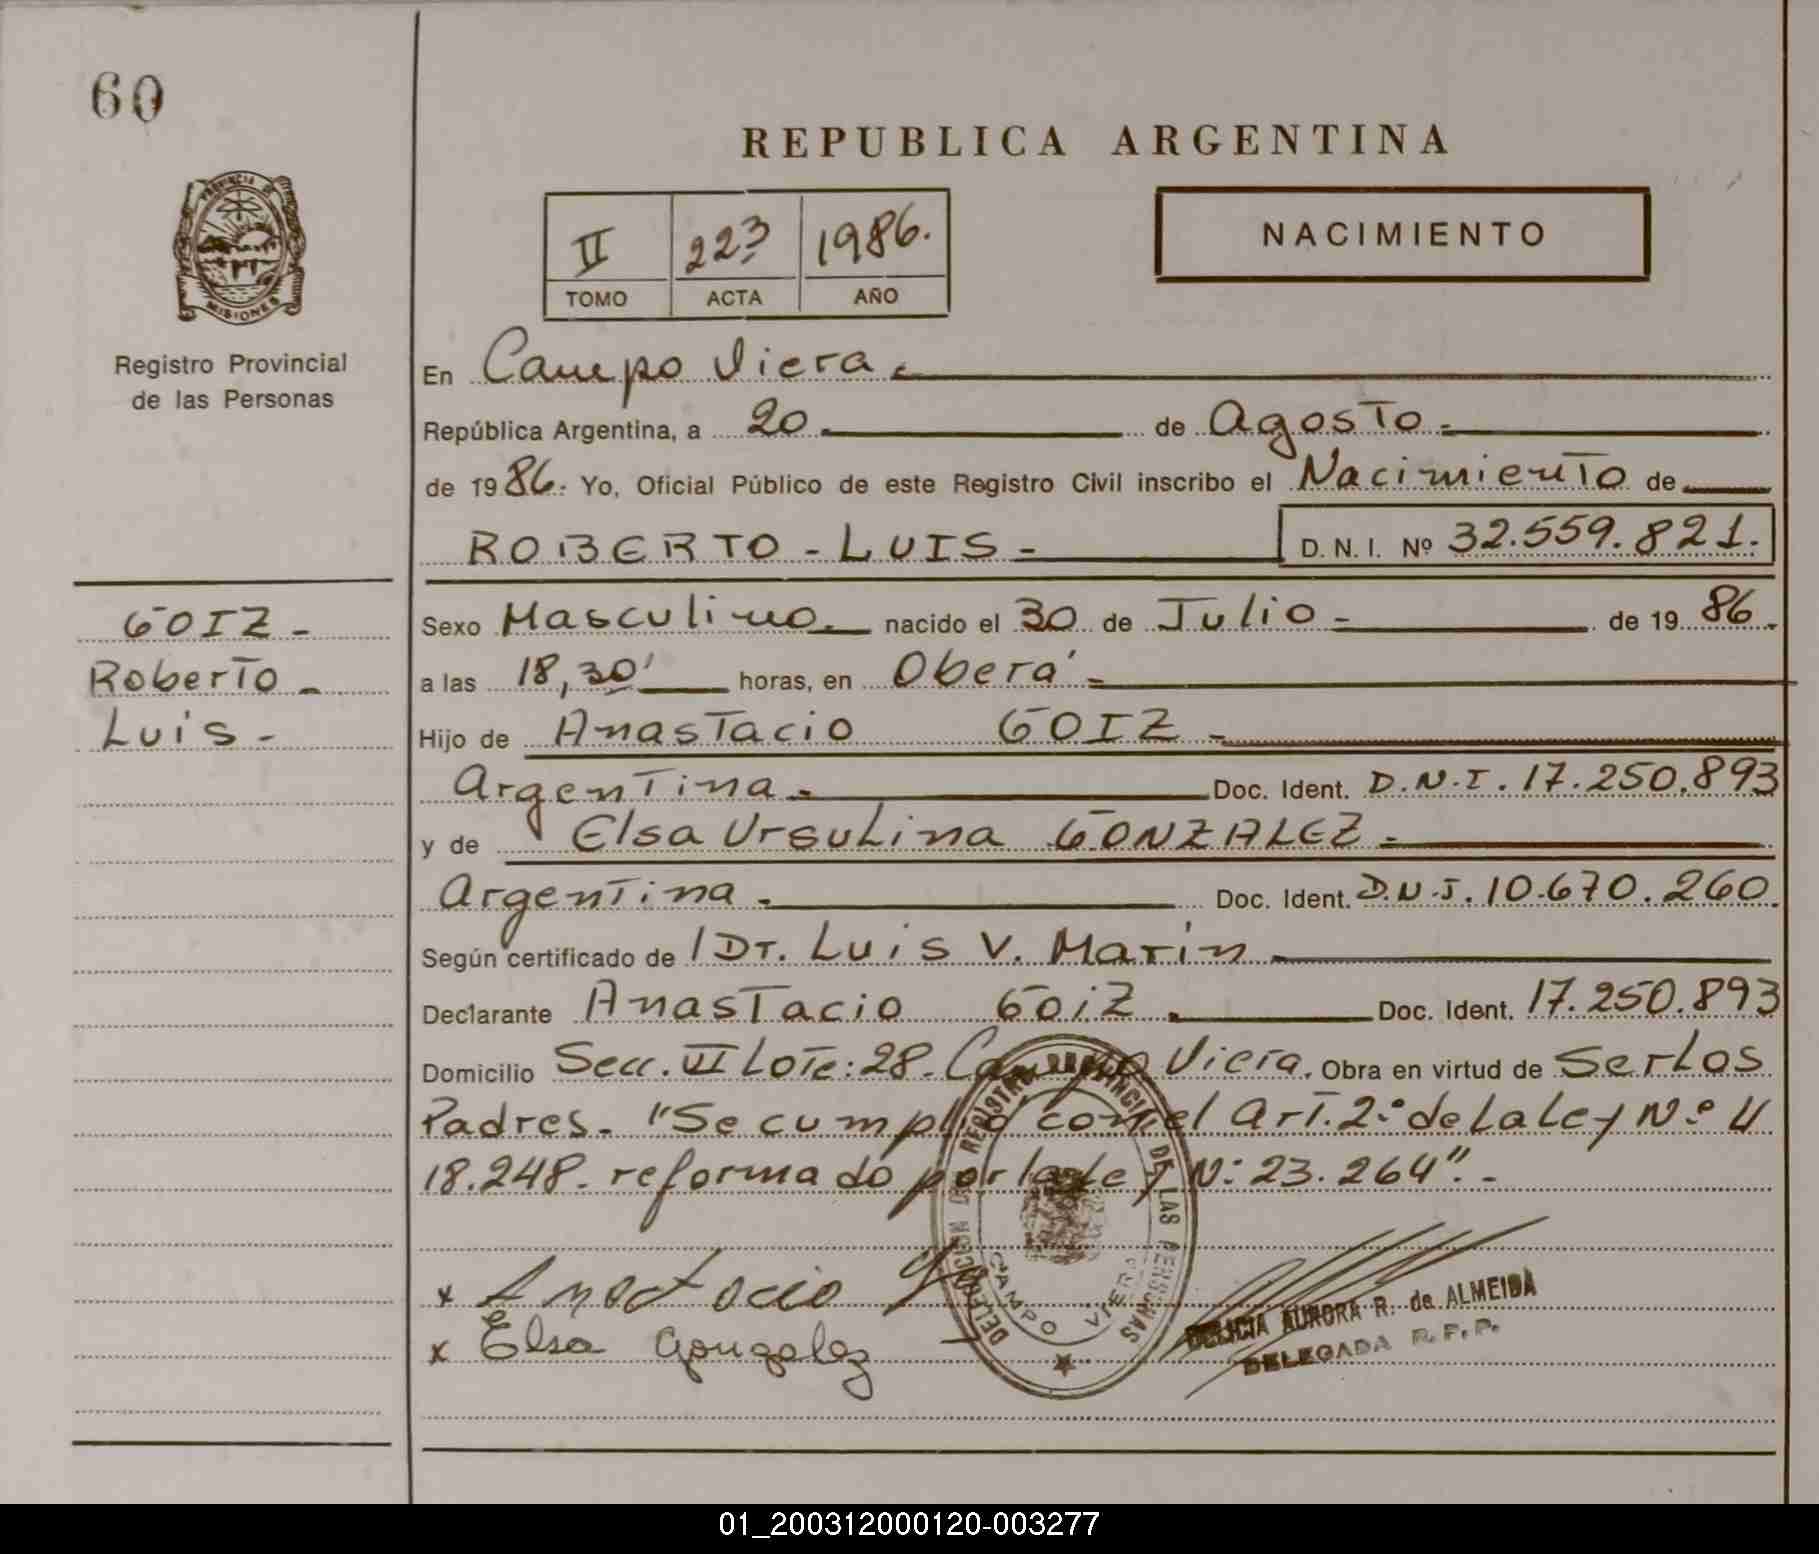 60
REPUBLICA ARGENTINA
II 223 1986.
TOMO ACTA AÑO
NACIMIENTO
PROVINCIA DE
MISIONES
Registro Provincial
de las Personas
En Campo Viera.
República Argentina, a 20 de Agosto
de 1986. Yo, Oficial Público de este Registro Civil inscribo el Nacimiento de
ROBERTO - LUIS - D. N. I. Nº 32.559.821.
GOIZ -
Roberto -
Luis -
Sexo Masculino nacido el 30 de Julio - de 19 86.
a las 18,30' horas, en Oberá
Hijo de Anastacio GOIZ -
Argentina. Doc. Ident. D.N.I. 17.250.893
y de Elsa Ursulina GONZALEZ
Argentina. Doc. Ident. D.N.I. 10.670.260.
Según certificado de Dr. Luis V. Marin
Declarante Anastacio Goiz. Doc. Ident. 17.250.893
Domicilio Secc. VI Lote: 28. Campo Viera. Obra en virtud de Ser Los
Padres. "Se cumplió con el Art. 2º de La Ley Nº
18.248. reformado por la Ley Nº 23.264".-
x Anastacio
x Elsa Gonzalez
DELEGACION DEL REGISTRO PROVINCIAL DE LAS PERSONAS
CAMPO VIERA
DELICIA AURORA R. de ALMEIDA
DELEGADA R. P. P.
01_200312000120-003277